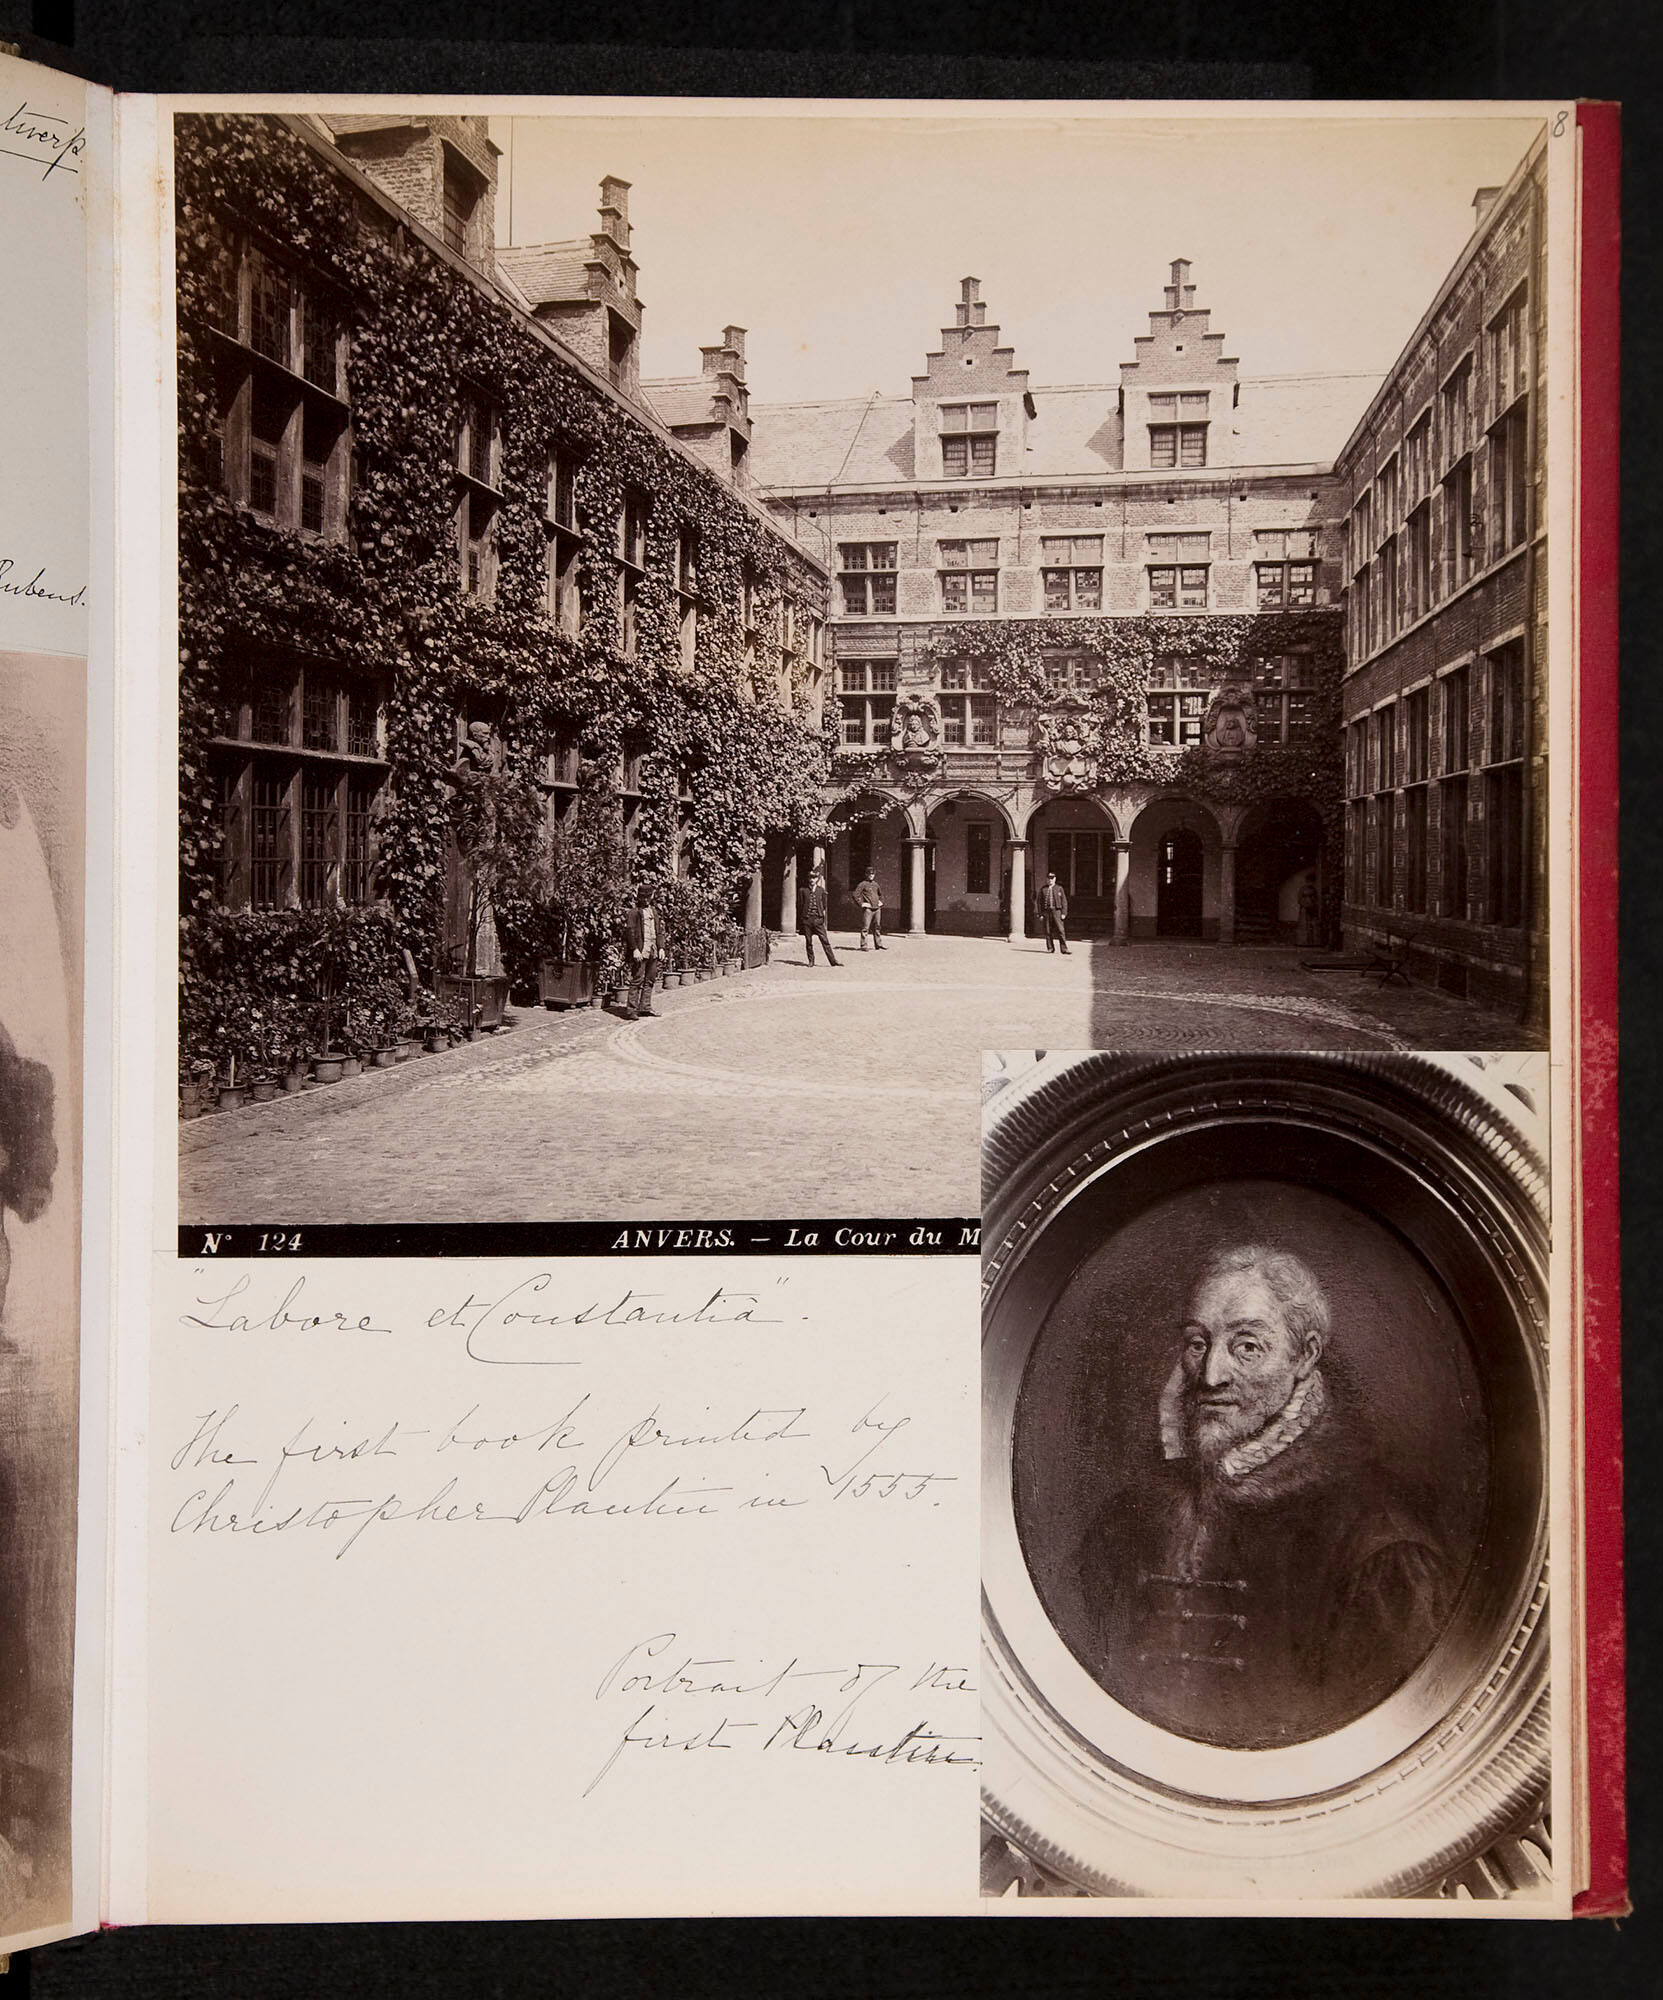 twerp.
Rubens.
8
N° 124 ANVERS. — La Cour du M
"Labore et Constantiâ".
The first book printed by
Christopher Plantin in 1555.
Portrait of the
first Plantin.